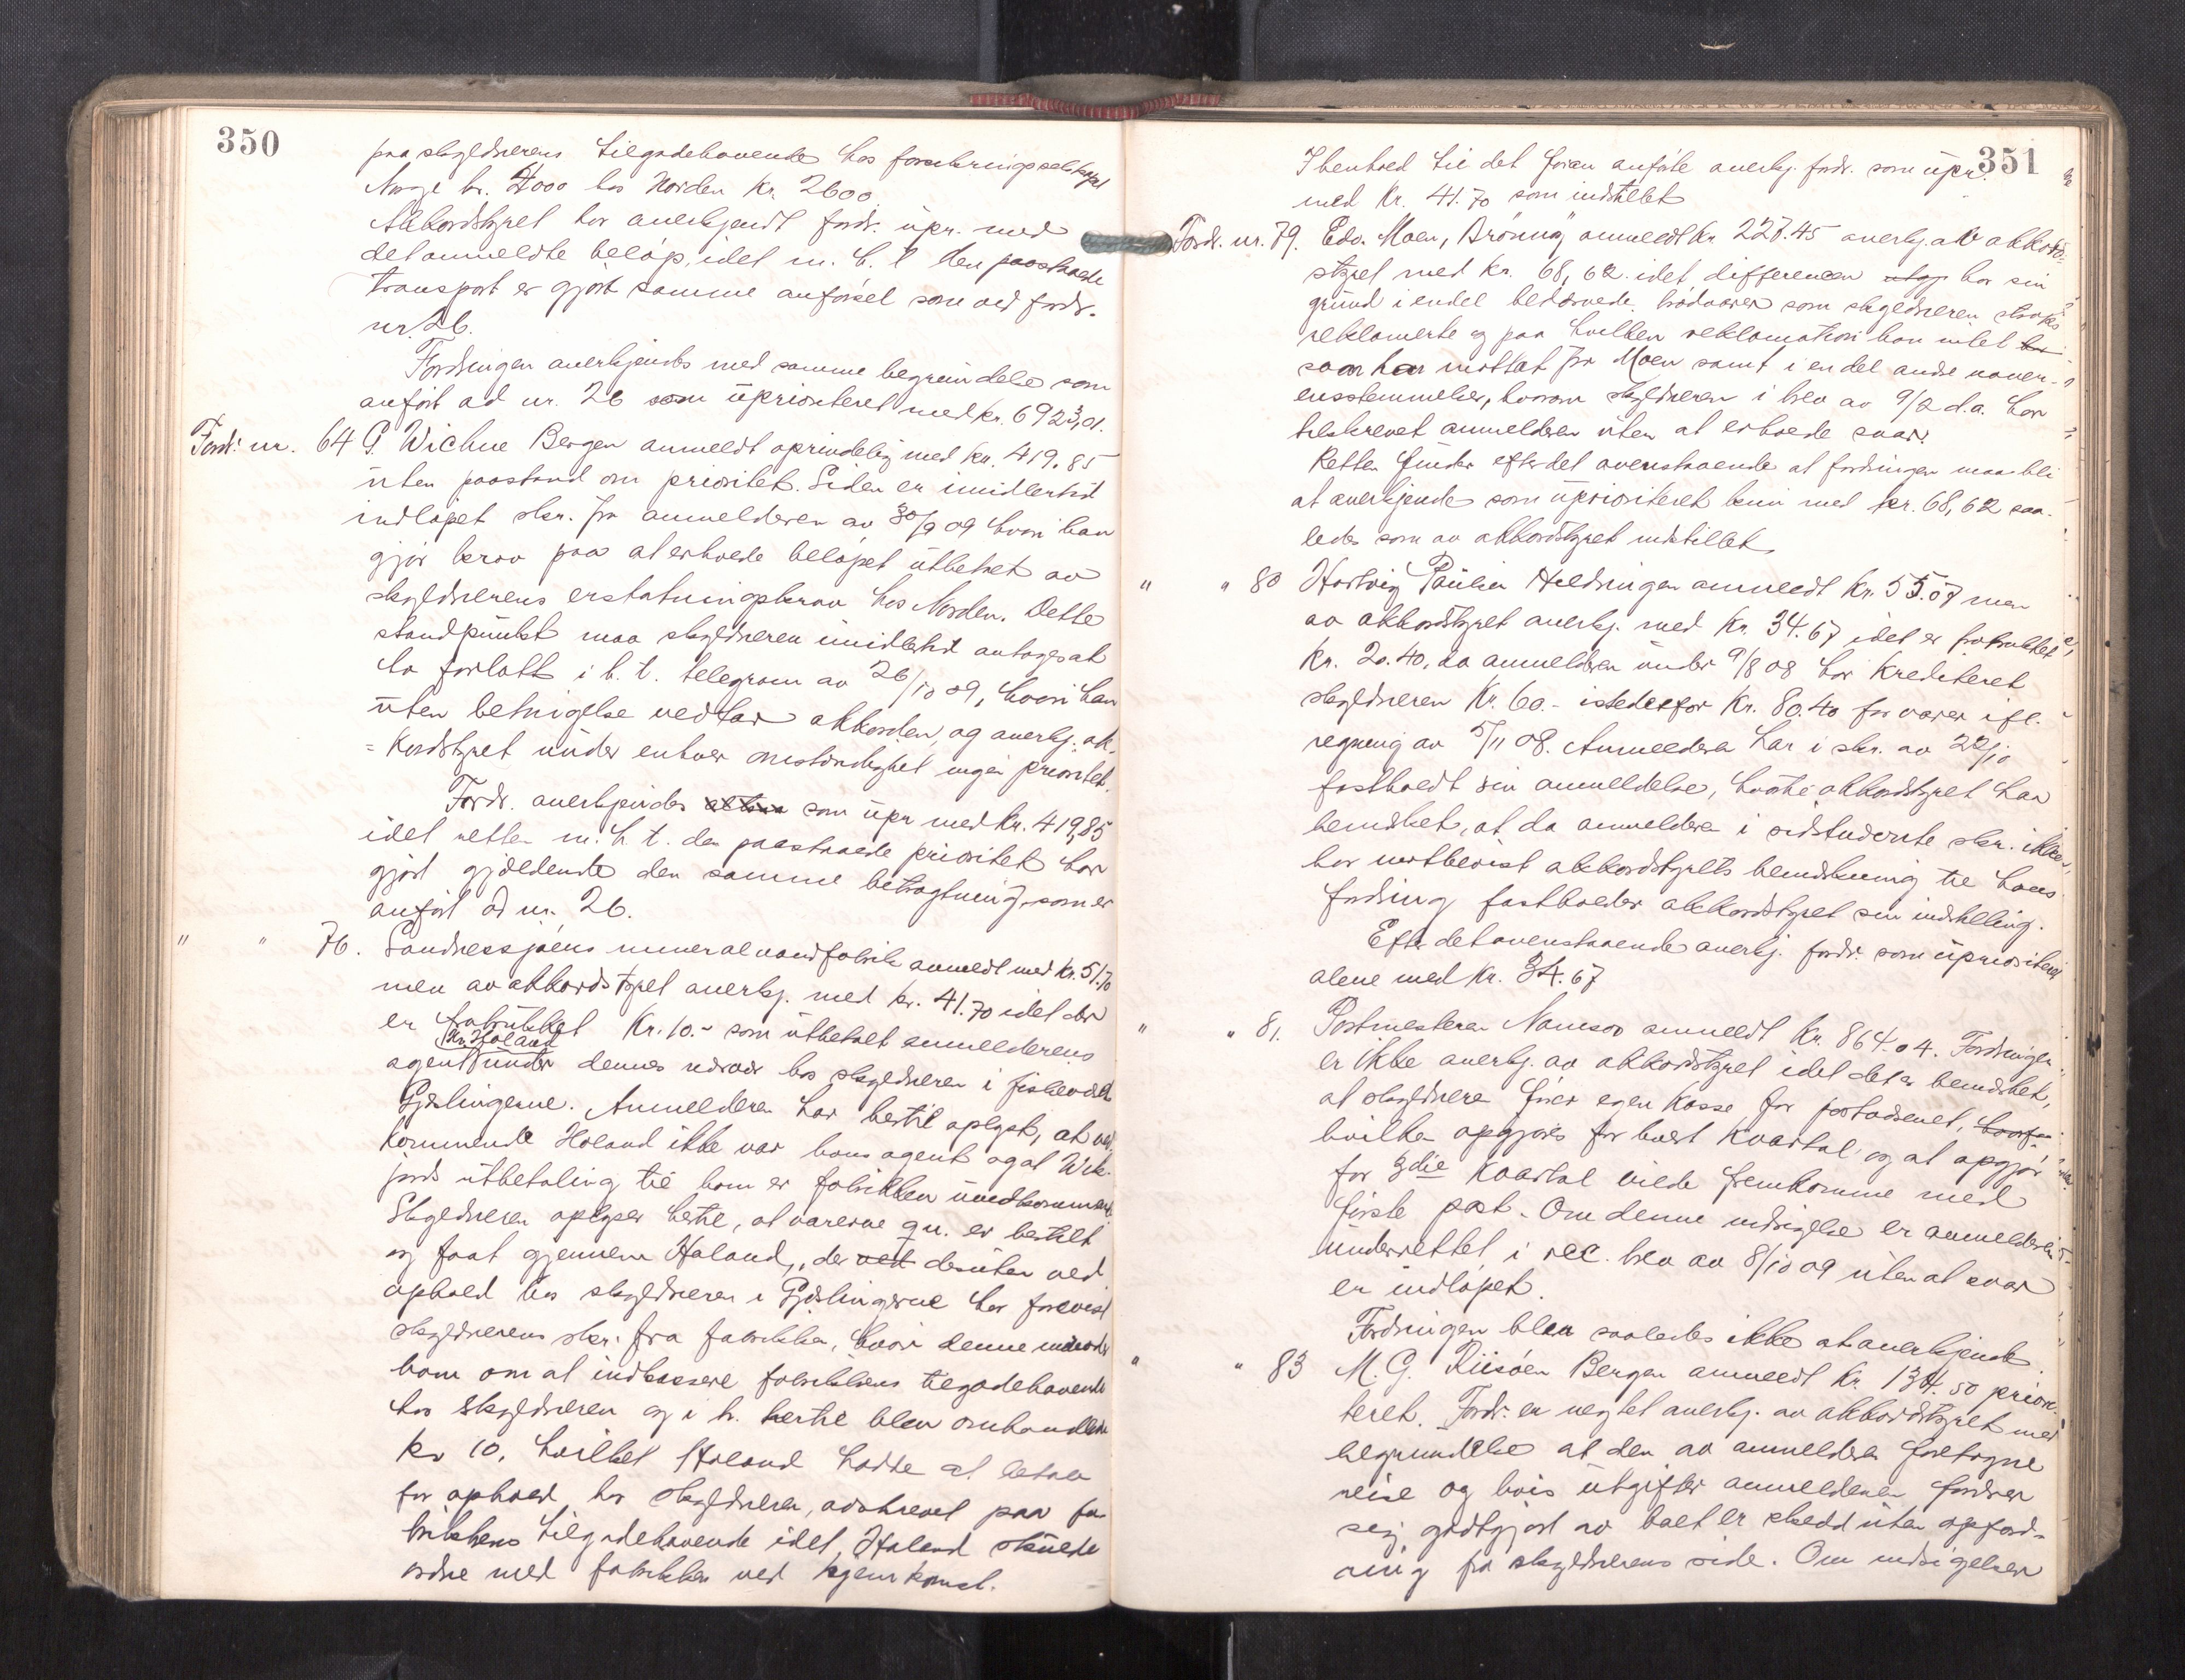 350
paa skyldnerens tilgodehavende hos forsikringsselskapet
Norge kr. 2000 hos Norden kr. 2600.
Akkordstyret har anerkjendt fordr. upr. med
det anmeldte beløp, idet m. h. t. den paastaaede
transport er gjort samme anførsel som ved fordr.
nr. 26.
Fordringen anerkjendes med samme begrundelse som
anført ad nr. 26 som uprioriteret med kr. 6923,01.
Fordr. nr. 64 G. Wichne Bergen anmeldt oprindelig med kr. 419.85
uten paastand om prioritet. Siden er imidlertid
indløpet skr. fra anmelderen av 30/9 09 hvori han
gjør krav paa at erholde beløpet utbetalt av
skyldnerens erstatningskrav hos Norden. Dette
standpunkt maa skyldneren imidlertid antages at
ha forlatt i h. t. telegram av 26/10 09, hvori han
uten betingelse vedtar akkorden, og anerkj. ak-
kordstyret under enhver omstændighet ingen prioritet.
Fordr. anerkjendes som upr med kr. 419,85
idet retten m. h. t. den paastaaede prioritet har
gjort gjældende den samme betragtning som er
anført ad nr. 26.
" " 76. Sandnessjøens mineralvandfabrik anmeldt med kr. 51.70
men av akkordstyret anerkj. med kr. 41.70 idet der
er fratrukket kr. 10.- som utbetalt anmelderens
Kr. Holand
agent under dennes nærvær hos skyldneren i fiskeværet
Gjæslingerne. Anmelderen har hertil oplyst, at ved-
kommende Holand ikke var hans agent og at Wik-
jords utbetaling til ham er fabrikken uvedkommende.
Skyldneren oplyser hertil, at varerne qu. er bestilt
og faat gjennem Haland, der ved desuten ved
ophold hos skyldneren i Gjæslingerne har forevist
skyldneren skr. fra fabrikken, hvori denne anmoder
ham om at indkassere fabrikkens tilgodehavende
hos skyldneren og i h. hertil blev omhandlede
kr 10, hvilket Holand hadde at betale
for ophold hos skyldneren, avskrevet paa fa-
brikkens tilgodehavende idet Haland skulde
ordne med fabrikken ved hjemkomst.
351
I henhold til det foran anførte anerkj. fordr. som upr.
med kr. 41.70 som indstillet
Fordr. nr. 79. Edv. Moen, Brønnø anmeldt kr. 227.45 anerkj. av akkord-
styret med kr. 68,62 idet differencen har sin
grund i endel bedærvede brødvarer som skyldneren straks
reklamerte og paa hvilken reklamation han intet
svar har mottat fra Moen samt i en del andre uover-
ensstemmelser, hvorom skyldneren i brev av 9/2 d.a. har
tilskrevet anmelderen uten at erholde svar.
Retten finder efter det ovenstaaende at fordringen maa bli
at anerkjende som uprioriteret kun med kr. 68,62 saa-
ledes som av akkordstyret indstillet.
" " 80 Hartvig Paulsen Heldringen anmeldt kr. 55.07 men
av akkordstyret anerkj. med kr. 34.67 idet er fratrukket
kr. 20.40, da anmelderen under 9/8 08 har krediteret
skyldneren kr. 60.- istedetfor kr. 80.40 for varer ifl.
regning av 5/11 08. Anmelderen har i skr. av 22/10
fastholdt sin anmeldelse, hvortil akkordstyret har
bemerket, at da anmelderen i sidstnævnte skr. ikke
har motbevist akkordstyrets bemerkning til hans
fordring fastholder akkordstyret sin indstilling.
Efter det ovenstaaende anerkj. fordr. som uprioriteret
alene med kr. 34.67
" " 81. Postmesteren Namsos anmeldt kr. 864.04. Fordringen
er ikke anerkj. av akkordstyret idet det er bemerket,
at skyldneren fører egen kasse for postvæsenet,
hvilken opgjøres for hvert kvartal og at opgjør
for 3die kvartal vilde fremkomme med
første post. Om denne indsigelse er anmelderen
underrettet i rec. brev av 8/10 09 uten at svar
er indløpet.
Fordringen blev saaledes ikke at anerkjende.
" " 83 M. G. Riisøen Bergen anmeldt kr. 134.50 priori-
teret. Fordr. er negtet anerkj. av akkordstyret med
begrundelse at den av anmelderen foretagne
reise og hvis utgifter anmelderen fordrer
sig godtgjort av boet er skedd uten opford-
ring fra skyldnerens side. Om indsigelsen